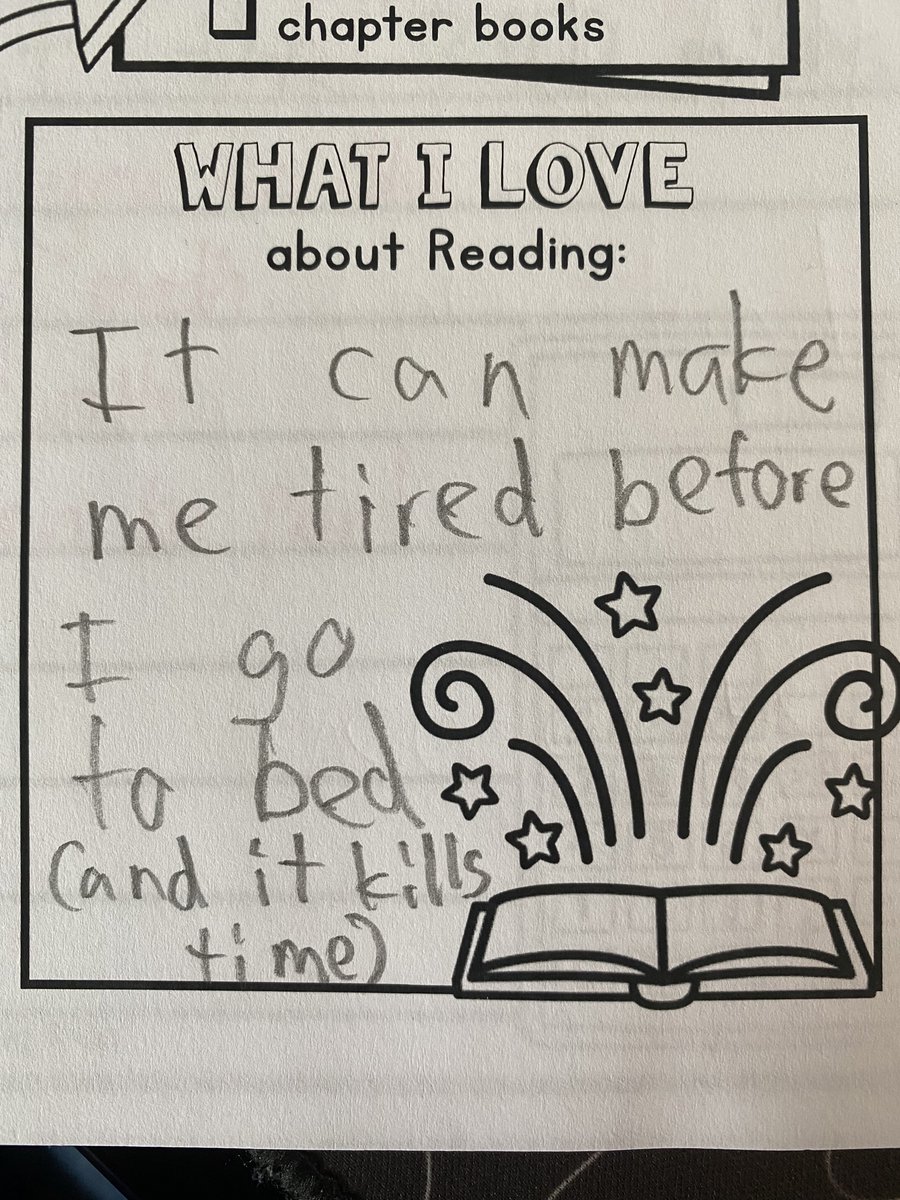 chapter books
WHAT I LOVE
about Reading:
It can make
me tired before
I go
to bed
(and it kills
time)